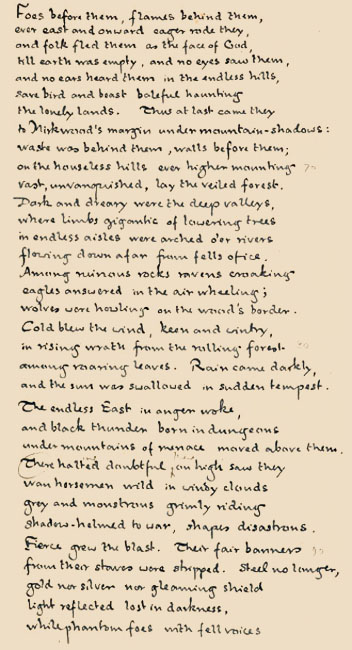 Foes before them, flames behind them,
ever east and onward eager rode they,
and folk fled them as the face of God,
till earth was empty, and no eyes saw them,
and no ears heard them in the endless hills,
save bird and beast baleful haunting
the lonely lands. Thus at last came they
to Mirkwood's margin under mountain-shadows:
waste was behind them, walls before them;
on the houseless hills ever higher mounting
vast, unvanquished, lay the veiled forest.
Dark and dreary were the deep valleys,
where limbs gigantic of lowering trees
in endless aisles were arched o'er rivers
flowing down afar from fells of ice.
Among ruinous rocks ravens croaking
eagles answered in the air wheeling;
wolves were howling on the wood's border.
Cold blew the wind, keen and wintry,
in rising wrath from the rolling forest
among roaring leaves. Rain came darkly,
and the sun was swallowed in sudden tempest.
The endless East in anger woke,
and black thunder born in dungeons
under mountains of menace moved above them.
There halted doubtful, on high saw they
wan horsemen wild in windy clouds
grey and monstrous grimly riding
shadow-helmed to war, shapes disastrous.
Fierce grew the blast. Their fair banners
from their staves were stripped. Steel no longer,
gold nor silver nor gleaming shield
light reflected lost in darkness,
while phantom foes with fell voices